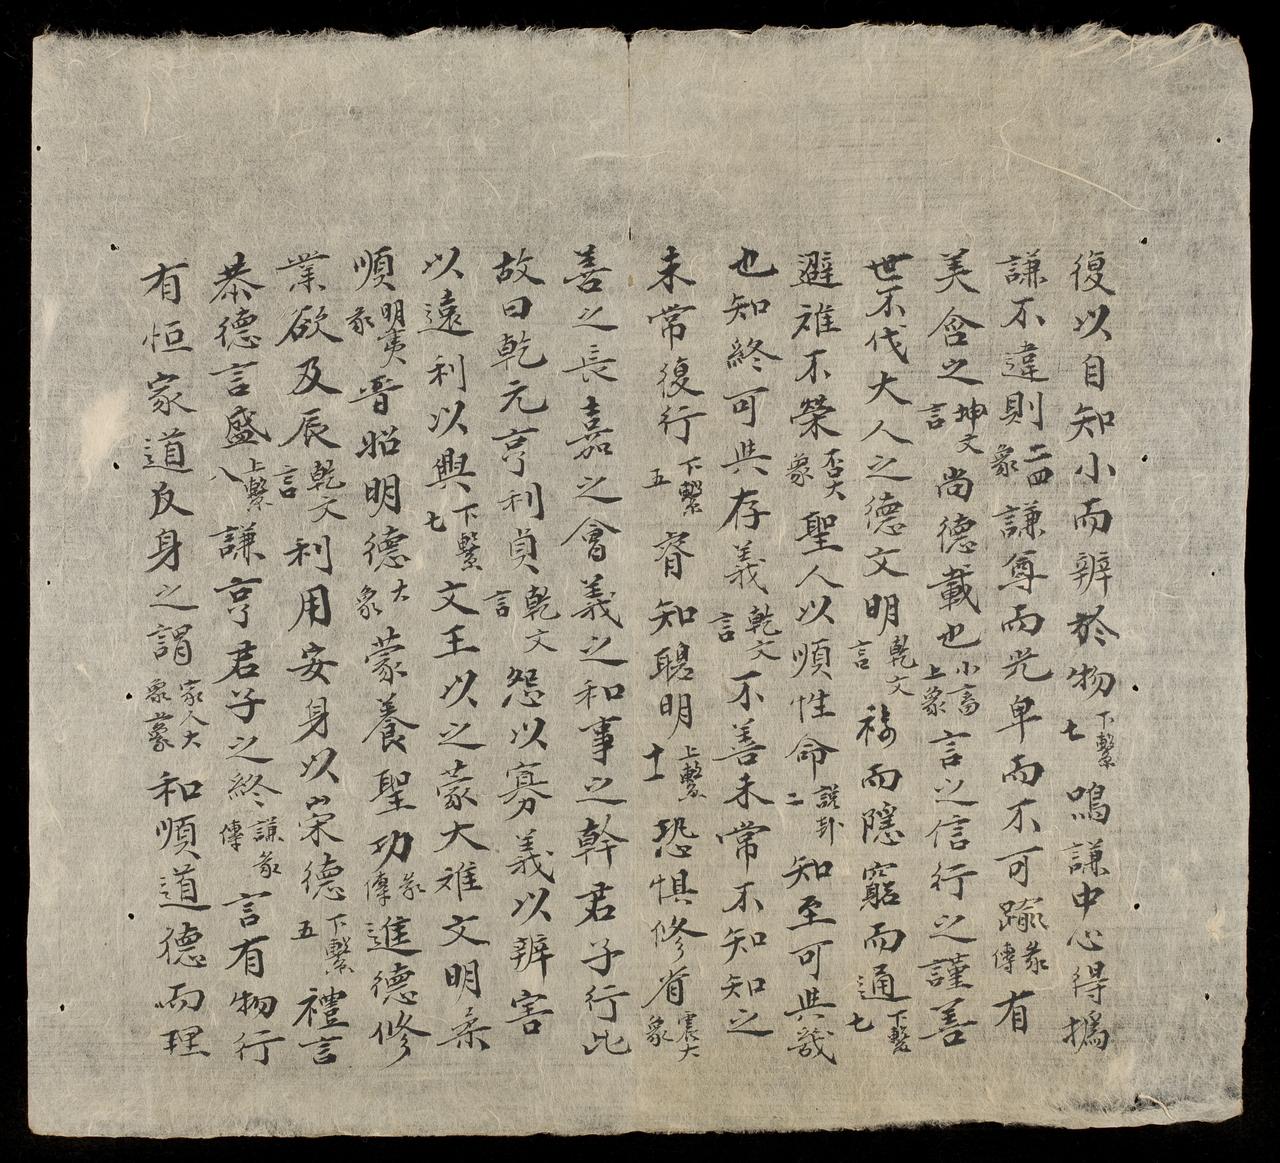 復以自知小而辨於物下繫七鳴謙中心得撝
謙不違則二四象謙尊而光卑而不可踰彖傳有
美含之坤文言尚德載也小畜上象言之信行之謹善
世不伐大人之德文明乾文言稱而隱窮而通下繫七
避難不榮否大象聖人以順性命說卦二知至可與幾
也知終可與存義乾文言不善未常不知知之
未常復行下繫五睿知聰明上繫十一恐懼修省震大象
善之長嘉之會義之和事之幹君子行此
故曰乾元亨利貞乾文言怨以寡義以辨害
以遠利以興下繫七文王以之蒙大難文明柔
順明夷彖晉昭明德大象蒙養聖功彖傳進德修
業欲及辰乾文言利用安身以崇德下繫五禮言
恭德言盛上繫八謙亨君子之終謙彖傳言有物行
有恒家道反身之謂家人大象爻象和順道德而理